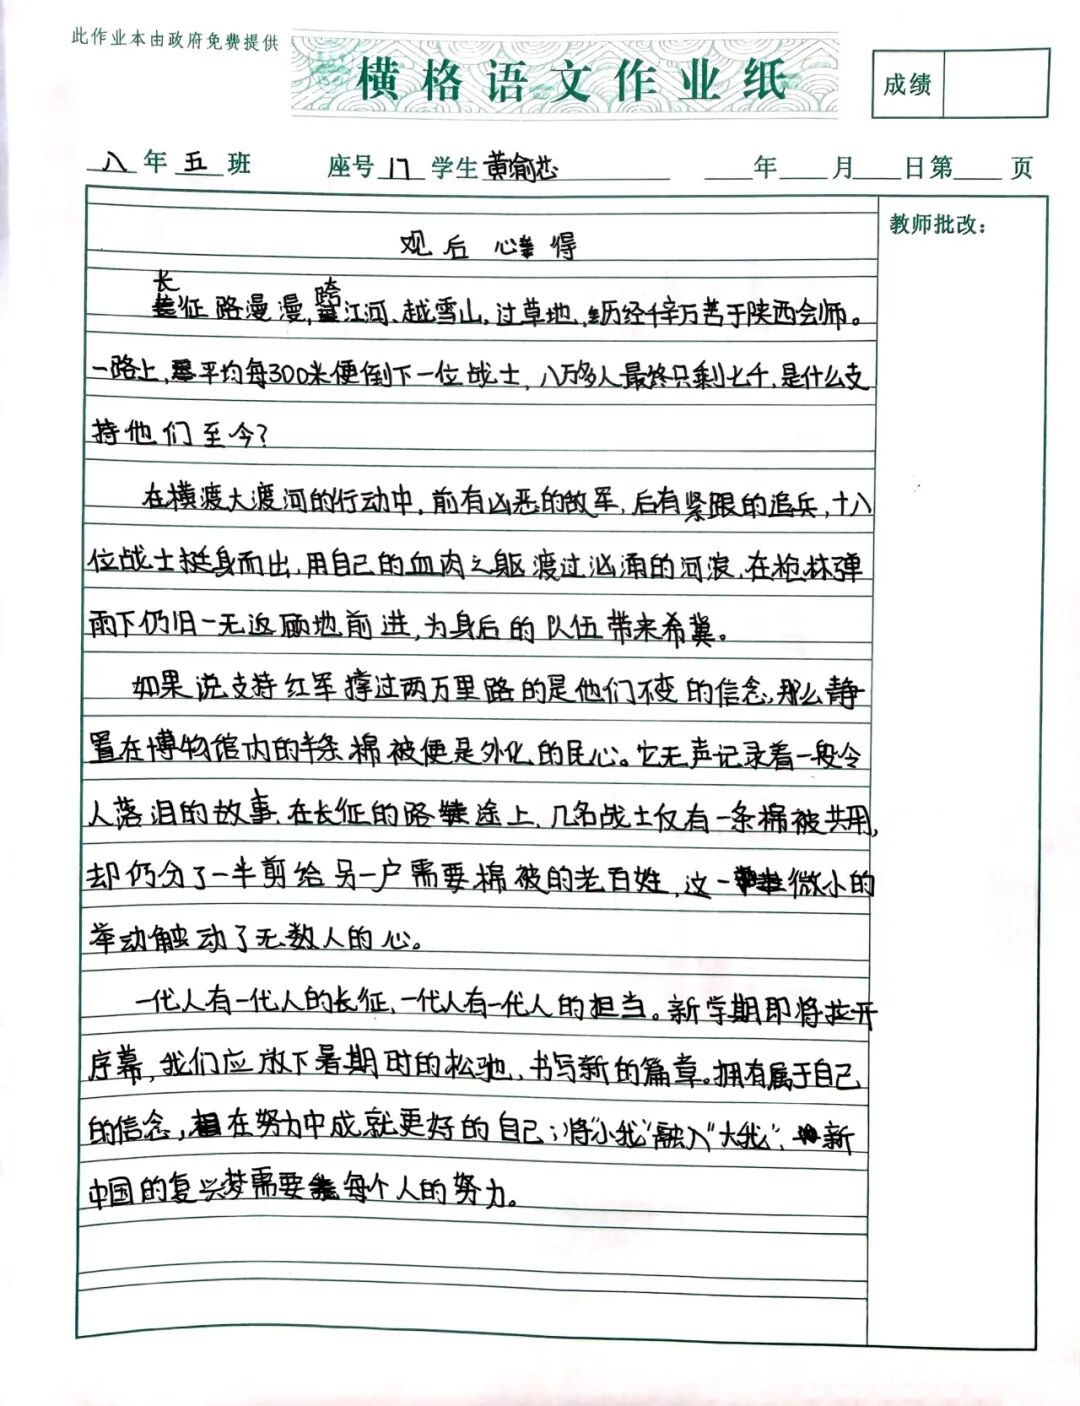 此作业本由政府免费提供
横格语文作业纸
成绩
八年五班 座号17学生黄愉芯 年 月 日第 页
教师批改：
观后心得
长征路漫漫,跨江河、越雪山,过草地,历经千辛万苦于陕西会师。
一路上,平均每300米便倒下一位战士,八万多人最终只剩七千,是什么支
持他们至今?
在横渡大渡河的行动中,前有凶恶的敌军,后有紧跟的追兵,十八
位战士挺身而出,用自己的血肉之躯渡过汹涌的河浪,在枪林弹
雨下仍旧一无返顾地前进,为身后的队伍带来希冀。
如果说支持红军撑过两万里路的是他们不变的信念,那么静
置在博物馆内的半条棉被便是外化的民心。它无声记录着一段令
人落泪的故事,在长征的路途上,几名战士仅有一条棉被共用,
却仍分了一半剪给另一户需要棉被的老百姓,这一微小的
举动触动了无数人的心。
一代人有一代人的长征,一代人有一代人的担当。新学期即将拉开
序幕,我们应放下暑期时的松驰,书写新的篇章。拥有属于自己
的信念,在努力中成就更好的自己;将“小我”融入“大我”,新
中国的复兴梦需要每个人的努力。